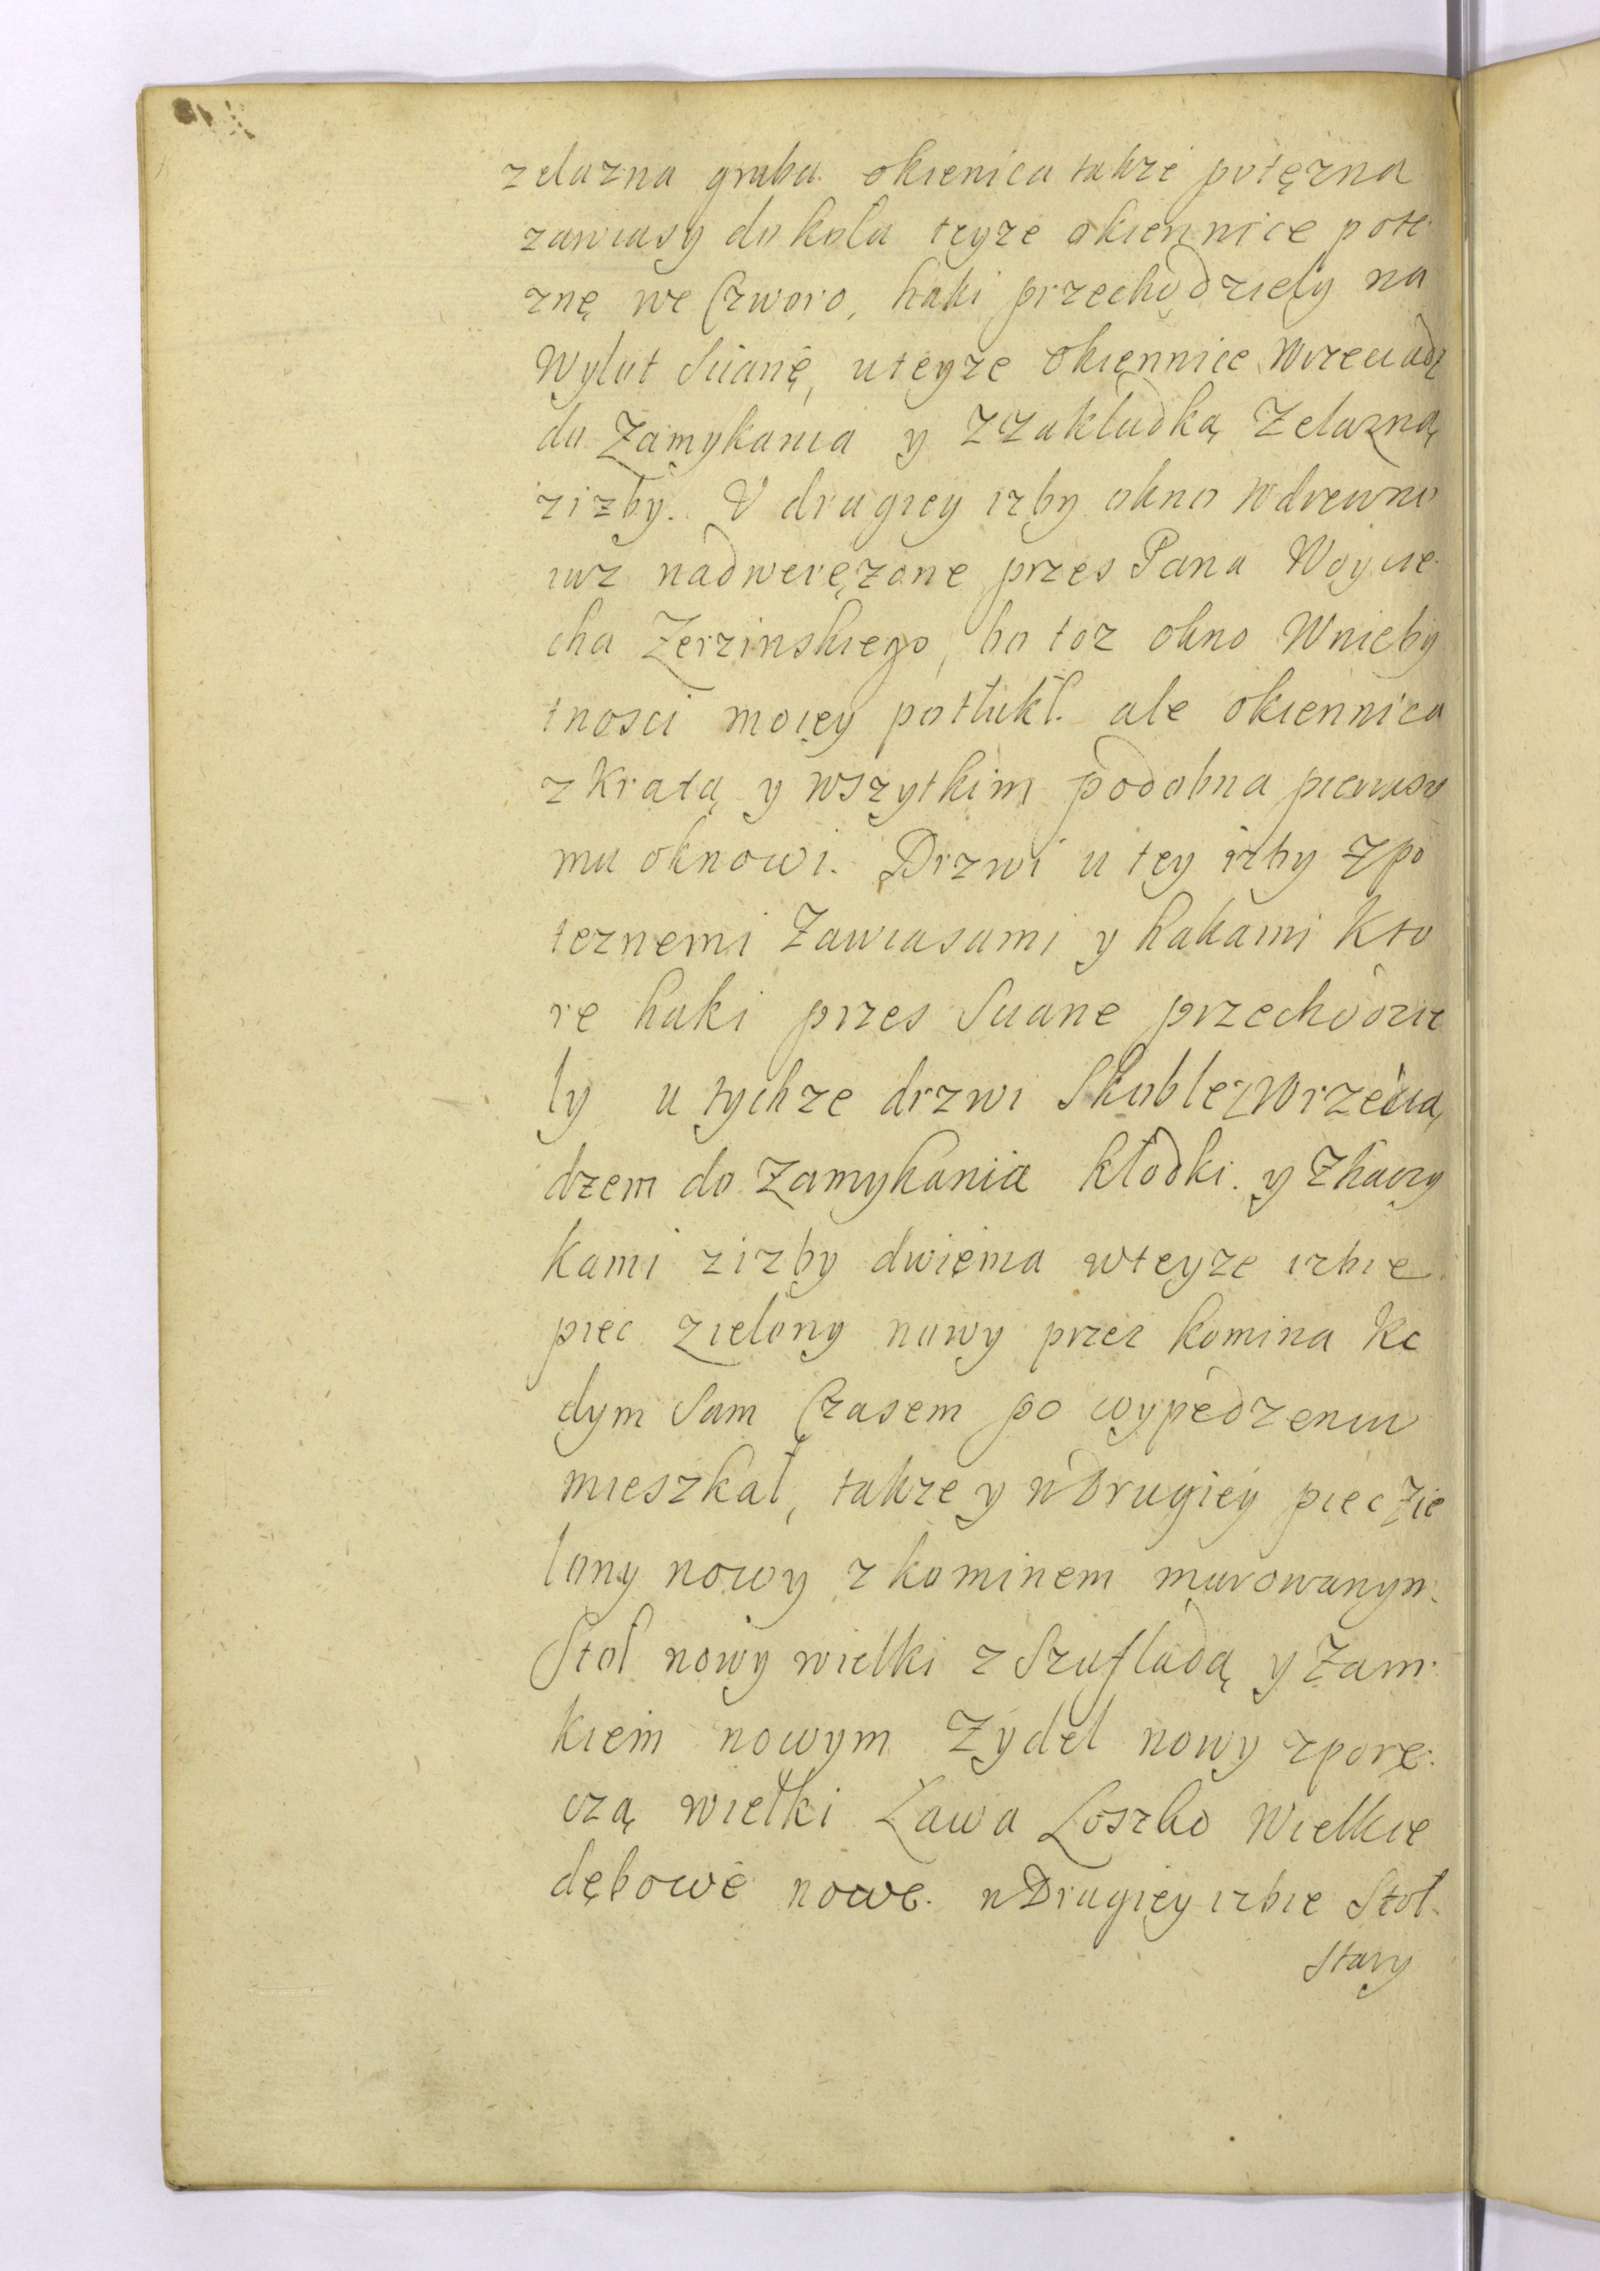 zelazna gruba. okienica takze potęzna
zawiasy do kola teyze okiennice pote
znę we Czworo, haki przechodziely na
Wylot Scianę, u teyze okiennice Wrzeciądz
do Zamykania y Z Zakładką Zelazną
z izby. V drugiey izby okno W drewno
iuz nadweręzone przes Pana Woycie
cha Zerzinskiego, bo toz okno W nieby
tnosci moiey potlukł. ale okiennica
z Kratą y wszytkim podobna pierwszy
mu oknowi. Drzwi u tey izby z po
teznemi Zawiasami y hakami Kto
re haki przes Sciane przechodzie
ly u tychze drzwi Skoble z Wrzecią
dzem do Zamykania kłodki. y Z haczy
kami z izby dwiema w teyze izbie
piec zielony nowy przez komina Ke
dym Sam Czasem po wypedzeniu
mieszkał, takze y w Drugiey piec Zie
lony nowy z kominem murowanym.
Stol nowy wielki z Szufladą y Zam
kiem nowym Zydel nowy z porę
czą wielki Ława Loszko Wielkie
dębowe nowe. w Drugiey izbie Stol
Stary